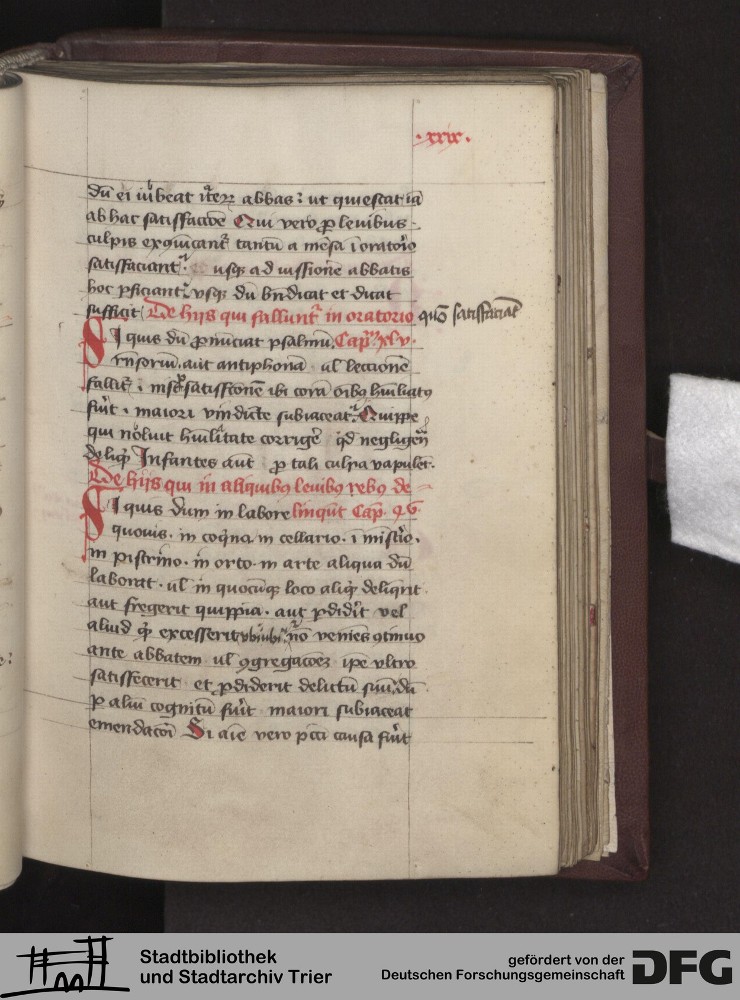 ·xxix·
dū ei iubeat iteɾ abbas: ut quiescat iā
ab hac satisfaccōe Qui vero ꝓ leuibus
culpis excōicant tantū a mēsa ī oratoio
satisfaciant: usqꝫ ad iussionē abbatis
hoc ꝑficiant: vsqꝫ dū bn̄dicat et dicat
sufficit De hijs qui fallunt in oratorio quō satisfaciāt
SI quis dū ꝓnūciat psalmū. Cap. xlv.
rn̄soriū. aut antiphonā ul leccionē
fallit. nisi satisfcionē ibi corā oībꝰ hūiliatꝰ
fuit. maiori vindicte subiaceat. Quippe
qui noluit hūilitate corrige qd negligen
deliqͥ Infantes aut ꝓ tali culpa vapulēt.
De hijs qui in aliquibꝰ leuibꝰ rebꝰ de-
SI quis dum in labore linqūt Cap. 46
quouis. in coqina in cellario. ī mistio.
in pistrino. in orto. in arte aliqua dū
laborat. ul in quocūqꝫ loco aliqͥ deliqrit
aut fregerit quippia. aut ꝑdidit vel
aliud qͥ excesserit ubiubi. nō veniēs ꝯtinuo
ante abbatem ul ꝯgregacōeꝫ ipe vltro
satisfecerit et ꝓdiderit delictū suū. dū
ꝑ aliū cognitū fuit maiori subiaceat
emendacōi Si aīe vero pcci causa fuit
Stadtbibliothek
und Stadtarchiv Trier
gefördert von der
Deutschen Forschungsgemeinschaft
DFG